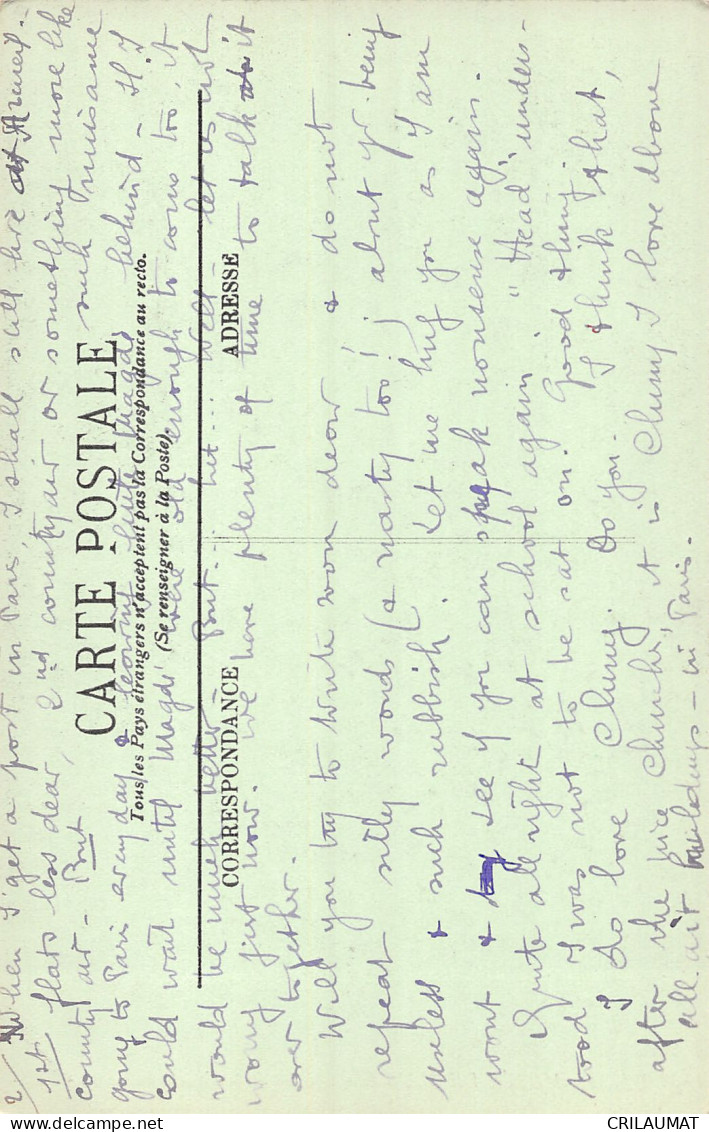 2/ When I get a post in Paris, I shall still live at Arcueil.
1st/ flats less dear, 2nd country air or something more like
country air - But such nuisance
going to Paris everyday & leaving little Magdi behind - If I
could wait until Magdi were old enough to come too, it
would be much better. But... yet... Well - let us not
worry just now. We have plenty of time to talk it
over together.
Will you try to write soon dear & do not
repeat silly words (& nasty too!) about yr being
useless & such rubbish. Let me hug you as I am
wont & see if you can speak nonsense again.
Quite all right at school again "Head" unders-
tood I was not to be sat on. Good thing.
I do love Cluny. Do you. I think that,
after the nice "Churche", it is Cluny I love above
all art buildings - in Paris.
CARTE POSTALE
Tous les Pays étrangers n'acceptent pas la Correspondance au recto.
(Se renseigner à la Poste).
CORRESPONDANCE
ADRESSE
CRILAUMAT